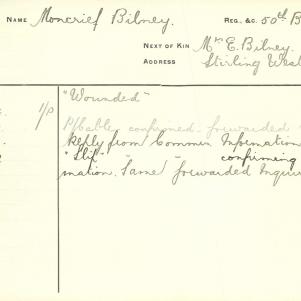 NAME Moncrief Bibney. REG. &C. 50th B
NEXT OF KIN Mrs E. Bibney.
ADDRESS Stirling West
1/P "Wounded"
confirmed forwarded
Reply from Common Information
"Slip" confirming
mation. "Same" forwarded Inquir